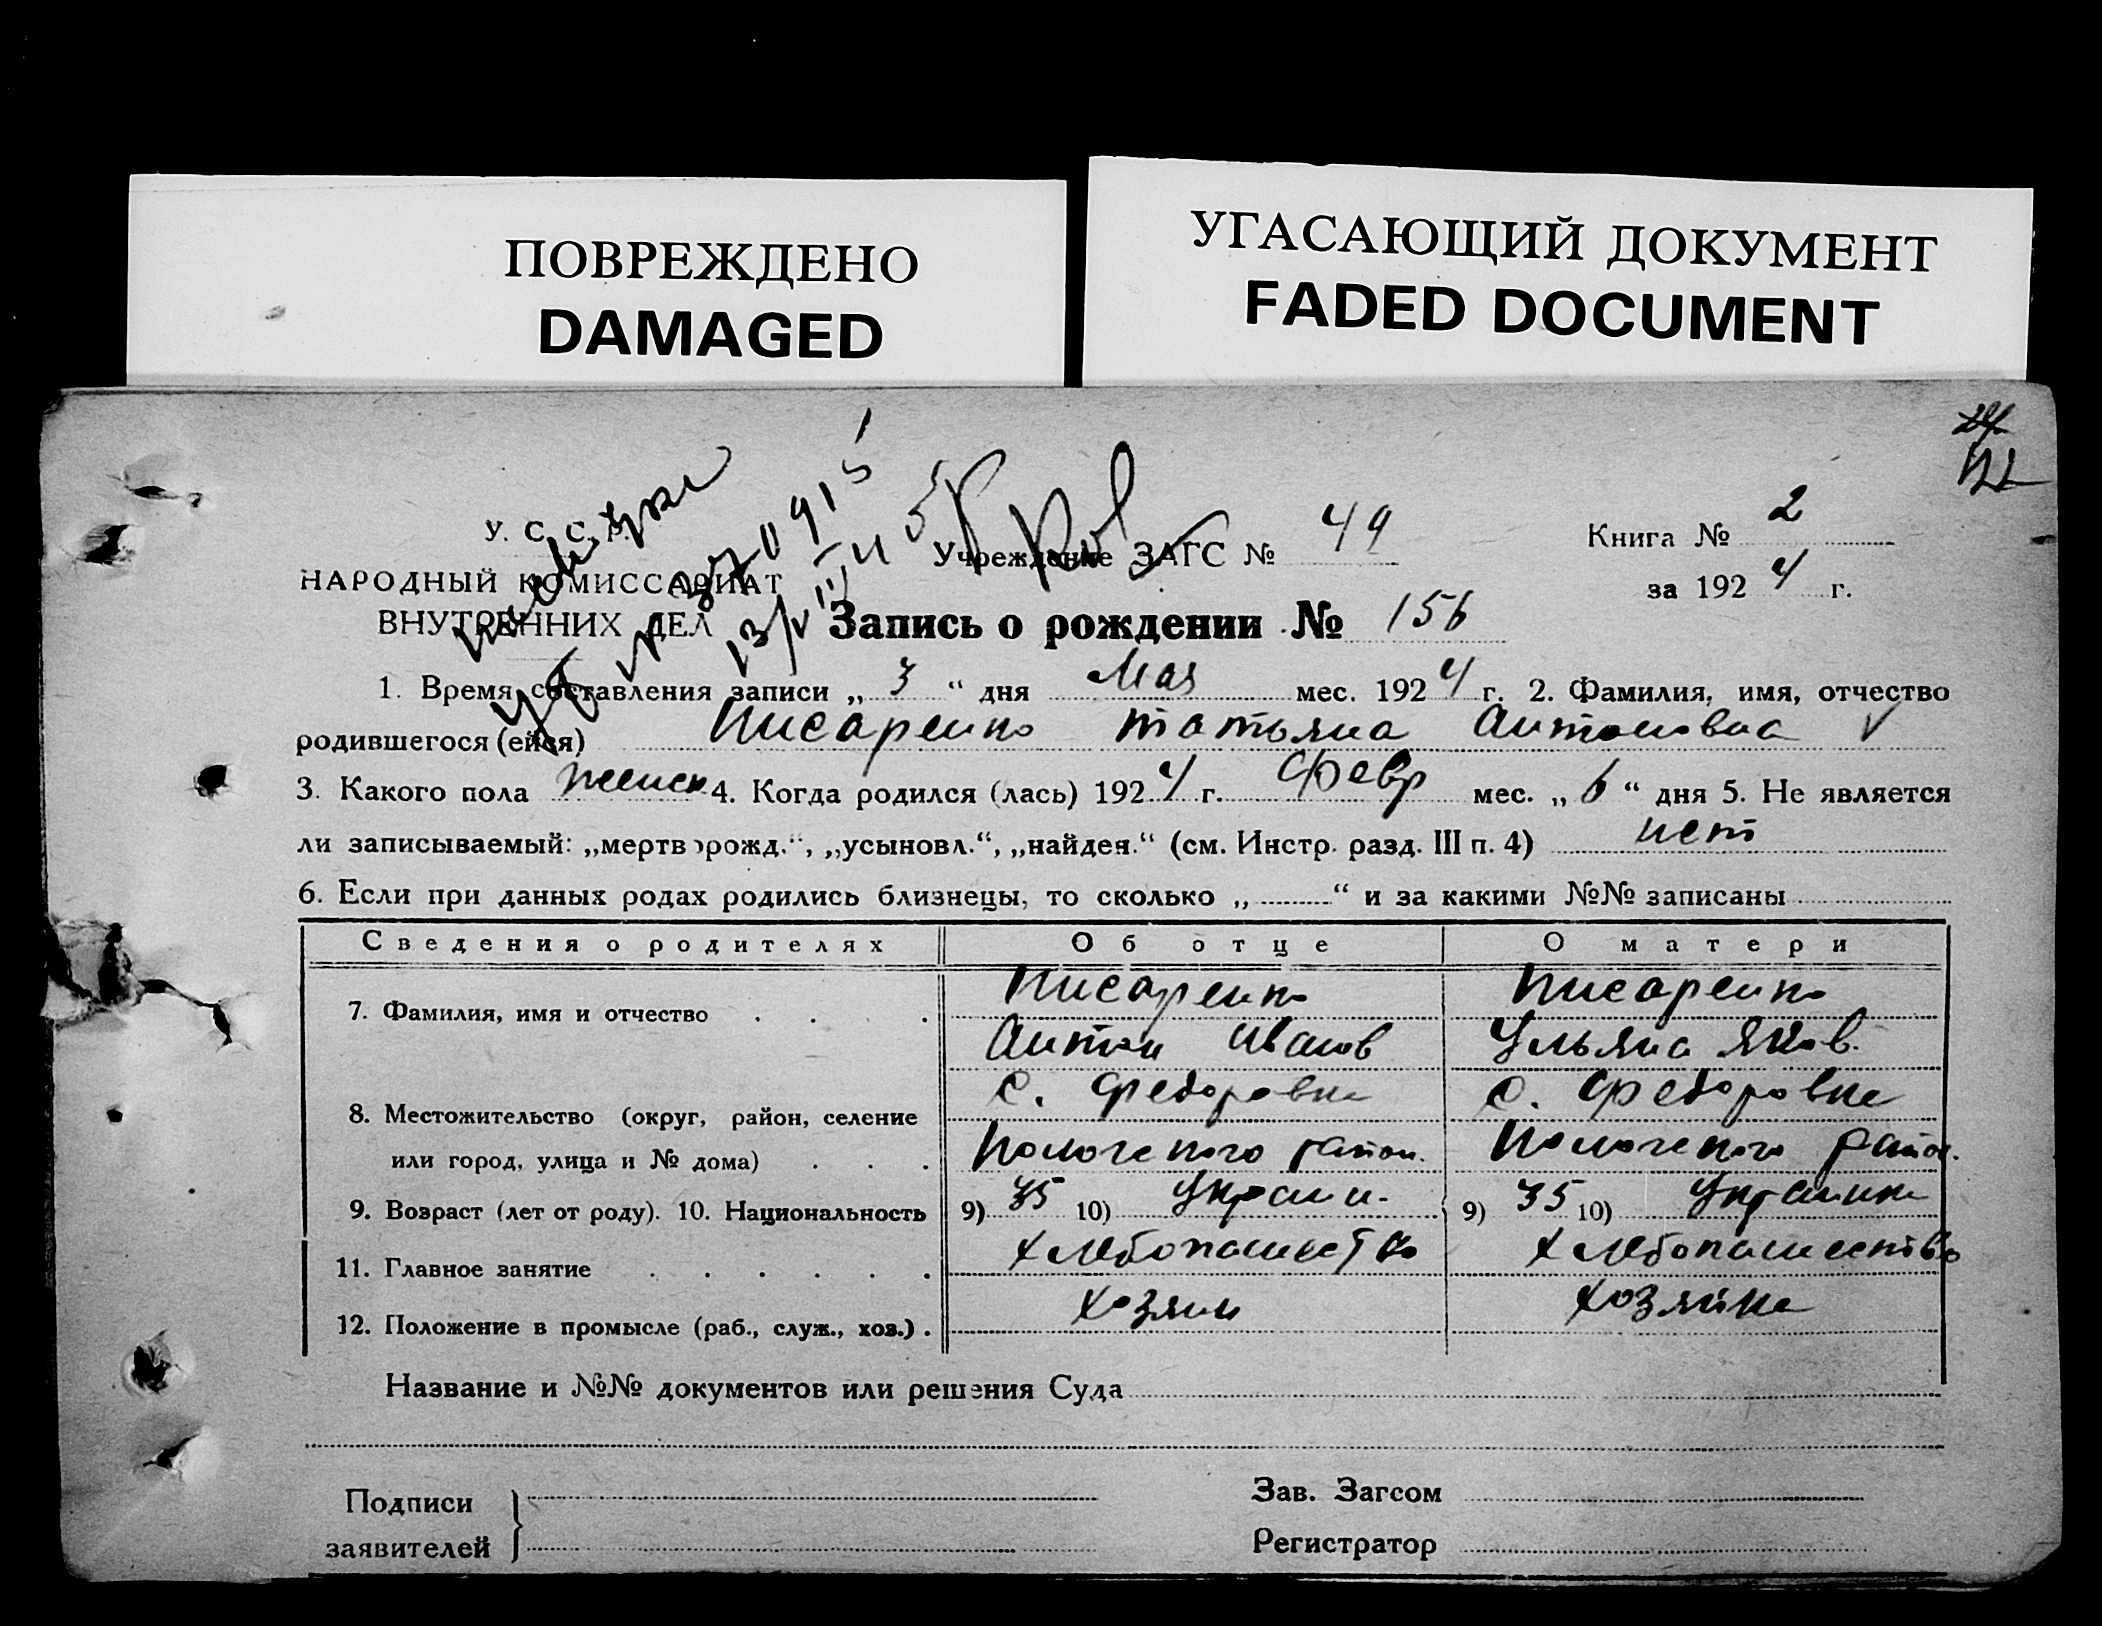 ПОВРЕЖДЕНО
DAMAGED
УГАСАЮЩИЙ ДОКУМЕНТ
FADED DOCUMENT
У. С. С. Р.
НАРОДНЫЙ КОМИССАРИАТ
ВНУТРЕННИХ ДЕЛ
Учреждение ЗАГС № 49
Книга № 2
за 1924 г.
Запись о рождении № 156
1. Время составления записи „ 3 “ дня Мая мес. 1924 г. 2. Фамилия, имя, отчество
родившегося (ейся) Писаренко Татьяна Антоновна
3. Какого пола женск 4. Когда родился (лась) 1924 г. Февр мес. „ 6 “ дня 5. Не является
ли записываемый: „мертворожд.“, „усыновл.“, „найден.“ (см. Инстр. разд. III п. 4) нет
6. Если при данных родах родились близнецы, то сколько „ “ и за какими №№ записаны
Сведения о родителях Об отце О матери
7. Фамилия, имя и отчество Писаренко Писаренко
Антон Иванов Ульяна Яков.
8. Местожительство (округ, район, селение с. Федоровка с. Федоровка
или город, улица и № дома) Пологского район. Пологского район.
9. Возраст (лет от роду). 10. Национальность 9) 35 10) Украин. 9) 35 10) Украинка
11. Главное занятие хлебопашество хлебопашество
12. Положение в промысле (раб., служ., хоз.) хозяин хозяйка
Название и №№ документов или решения Суда
Подписи
заявителей
Зав. Загсом
Регистратор